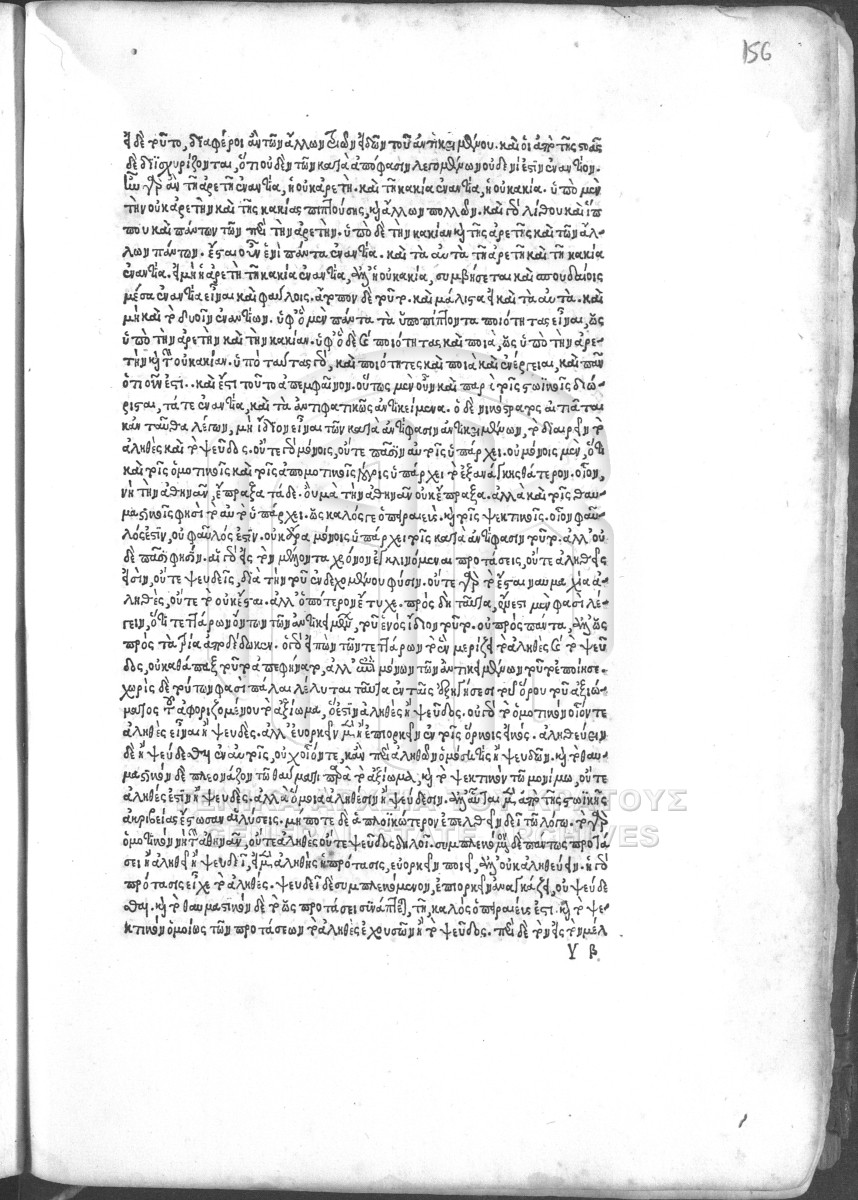 156
εἰ δὲ τοῦτο, διαφέροι ἂν τῶν ἄλλων εἰδῶν τοῦ ἀντικειμένου. καὶ οἱ ἀπὸ τῆς στοᾶς
δὲ διϊσχυρίζονται, ὅτι οὐδὲν τῶν κατὰ ἀπόφασιν λεγομένων οὐδενί ἐστιν ἐναντίον.
ἦν γὰρ ἂν τῇ ἀρετῇ ἐναντία, ἡ οὐκ ἀρετή. καὶ τῇ κακίᾳ ἐναντία, ἡ οὐ κακία. ὑπὸ μὲν
τὴν οὐκ ἀρετὴν καὶ τῆς κακίας πιπτούσης, καὶ ἄλλων πολλῶν. καὶ γὰρ λίθου καὶ ἵπ
που καὶ πάντων τῶν παρὰ τὴν ἀρετήν. ὑπὸ δὲ τὴν κακίαν καὶ τῆς ἀρετῆς καὶ τῶν ἄλ-
λων πάντων. ἔσται οὖν ἑνὶ πάντα ἐναντία. καὶ τὰ αὐτὰ τῇ ἀρετῇ καὶ τῇ κακίᾳ
ἐναντία. εἰ μὴ ἡ ἀρετὴ τῇ κακίᾳ ἐναντία, ἀλλ' ἡ οὐ κακία, συμβήσεται καὶ σπουδαίοις
μέσα ἐναντία εἶναι καὶ φαύλοις. ἄτοπον δὲ τοῦτο. καὶ μάλιστα εἰ καὶ τὰ αὐτά. καὶ
ὑπὸ τὴν ἀρετὴν καὶ τὴν κακίαν. ὑφ' ὃ δὲ καὶ ποιότητας καὶ ποιὰ, ὡς ὑπὸ τὴν ἀρε-
τὴν καὶ τὴν οὐ κακίαν. ὑπὸ ταύτας γὰρ, καὶ ποιότητες καὶ ποιὰ καὶ ἐνέργειαι, καὶ πᾶν
ὅτι οὖν ἐστί. καὶ ἔστι τοῦτο ἀπεμφαῖνον. οὕτως μὲν οὖν καὶ παρὰ τοῖς στωϊκοῖς διώ-
ρισται, τά τε ἐναντία, καὶ τὰ ἀντιφατικῶς ἀντικείμενα. ὁ δὲ νικόστρατος αἰτιᾶται
κἀνταῦθα λέγων, μὴ ἴδιον εἶναι τῶν κατὰ ἀντίφασιν ἀντικειμένων, τὸ διαιρεῖν τὸ
ἀληθὲς καὶ τὸ ψεῦδος. οὔτε γὰρ μόνοις, οὔτε πᾶσιν αὐτοῖς ὑπάρχει. οὐ μόνοις μὲν, ὅτι
καὶ τοῖς ὀμοτικοῖς καὶ τοῖς ἀπομοτικοῖς λόγοις ὑπάρχει τὸ ἐξανάγκης θάτερον. οἷον,
νὴ τὴν ἀθηνᾶν, ἔπραξα τάδε. οὐ μὰ τὴν ἀθηνᾶν οὐκ ἔπραξα. ἀλλὰ καὶ τοῖς θαυ-
μαστικοῖς φησὶ τὸ αὐτὸ ὑπάρχει. ὡς καλός γε ὁ πειραιεύς. καὶ τοῖς ψεκτικοῖς. οἷον φαῦ
λός ἐστιν, οὐ φαῦλός ἐστιν. οὐκ ἄρα μόνοις ὑπάρχει τοῖς κατὰ ἀντίφασιν τοῦτο. ἀλλ' οὐ
δὲ πᾶσι φησίν. αἱ γὰρ εἰς τὸν μέλλοντα χρόνον ἐγκλινόμεναι προτάσεις, οὔτε ἀληθεῖς
εἰσὶν, οὔτε ψευδεῖς, διὰ τὴν τοῦ ἐνδεχομένου φύσιν. οὔτε γὰρ τὸ ἔσται ναυμαχία ἀ-
ληθὲς, οὔτε τὸ οὐκ ἔσται. ἀλλ' ὁπότερον ἔτυχε. πρὸς δὴ ταῦτα, ἔνεστι μὲν φασὶ λέ-
γειν, ὅτι τεττάρων ὄντων τῶν ἀντικειμένων, τοῦ ἑνὸς ἴδιον τοῦτο. οὐ πρὸς πάντα, ἀλλ' ὡς
πρὸς τὰ τρία ἀποδέδωκεν. ὁ γὰρ εἰπὼν τῶν τεττάρων τὸ ἓν μερίζειν τὸ ἀληθὲς καὶ τὸ ψεῦ
δος, οὐ καθάπαξ τοῦτο ἀπεφήνατο, ἀλλ' ἐπὶ μόνων τῶν ἀντικειμένων τοῦτο ἐποίησε.
χωρὶς δὲ τούτων φασὶ πάλαι λέλυται ταῦτα ἐν ταῖς ἐξηγήσεσι τοῦ ὅρου τοῦ ἀξιώ-
ματος τοῦ ἀφοριζομένου τὸ ἀξίωμα, ὅ ἐστιν ἀληθὲς ἢ ψεῦδος. οὐ γὰρ τὸ ὀμοτικὸν οἷόν τε
ἀληθὲς εἶναι ἢ ψευδές. ἀλλ' εὐορκεῖν μὲν ἢ ἐπιορκεῖν ἐν τοῖς ὅρκοις εἰκός. ἀληθεύειν
δὲ ἢ ψεύδεσθαι ἐν αὐτοῖς, οὐχ οἷόν τε, κἂν περὶ ἀληθῶν ὀμόσῃ τις ἢ ψευδῶν. καὶ τὸ θαυ-
μαστικὸν δὲ πλεονάζον τῷ θαύματι παρὰ τὸ ἀξίωμα, καὶ τὸ ψεκτικὸν τῷ μορίῳ, οὔτε
ἀληθές ἐστιν ἢ ψευδές. ἀλλὰ ὅμοια ἀληθέσιν ἢ ψευδέσιν. ἀλλ' αὗται μὲν, ἀπὸ τῆς στωϊκῆς
ἀκριβείας ἔστωσαν αἱ λύσεις. μήποτε δὲ ἁπλοϊκώτερον ἐπελθεῖν δεῖ τῷ λόγῳ. τὸ γὰρ
ὀμοτικὸν νὴ τὴν ἀθηνᾶν, οὔτε ἀληθὲς οὔτε ψεῦδος δηλοῖ. συμπλεκόμενον δὲ πάντως προτά
σει ἢ ἀληθεῖ ἢ ψευδεῖ, εἰ μὲν ἀληθὴς ἡ πρότασις, εὐορκεῖν ποιεῖ, ἀλλ' οὐκ ἀληθεύειν. ἡ γὰρ
πρότασις εἶχε τὸ ἀληθές. ψευδεῖ δὲ συμπλεκόμενον, ἐπιορκεῖν ἀναγκάζει, οὐ ψεύδε
σθαι. καὶ τὸ θαυμαστικὸν δὲ τὸ ὡς προτάσει συνάπτεται, τῇ, καλὸς ὁ πειραιεύς ἐστι. καὶ τὸ ψε-
κτικὸν ὁμοίως τῶν προτάσεων τὸ ἀληθὲς ἐχουσῶν ἢ τὸ ψεῦδος. περὶ δὲ τῶν εἰς τὸν μέλ
Υ β
ΓΕΝΙΚΑ ΑΡΧΕΙΑ ΤΟΥ ΚΡΑΤΟΥΣ
GENERAL STATE ARCHIVES